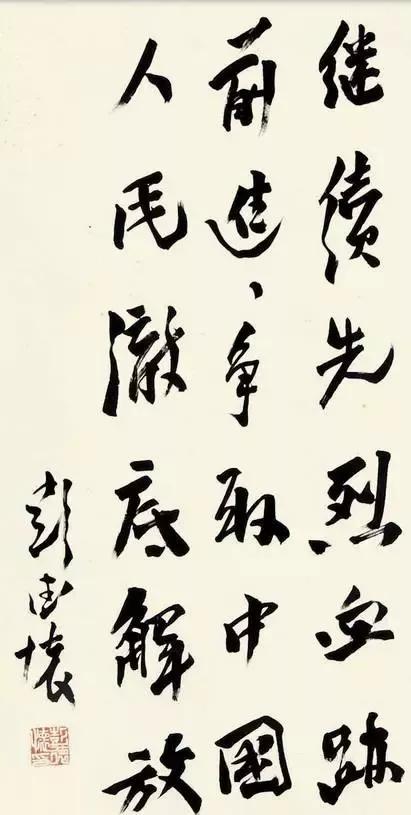 继续先烈血跡
前進、争取中國
人民澈底解放
彭德懷